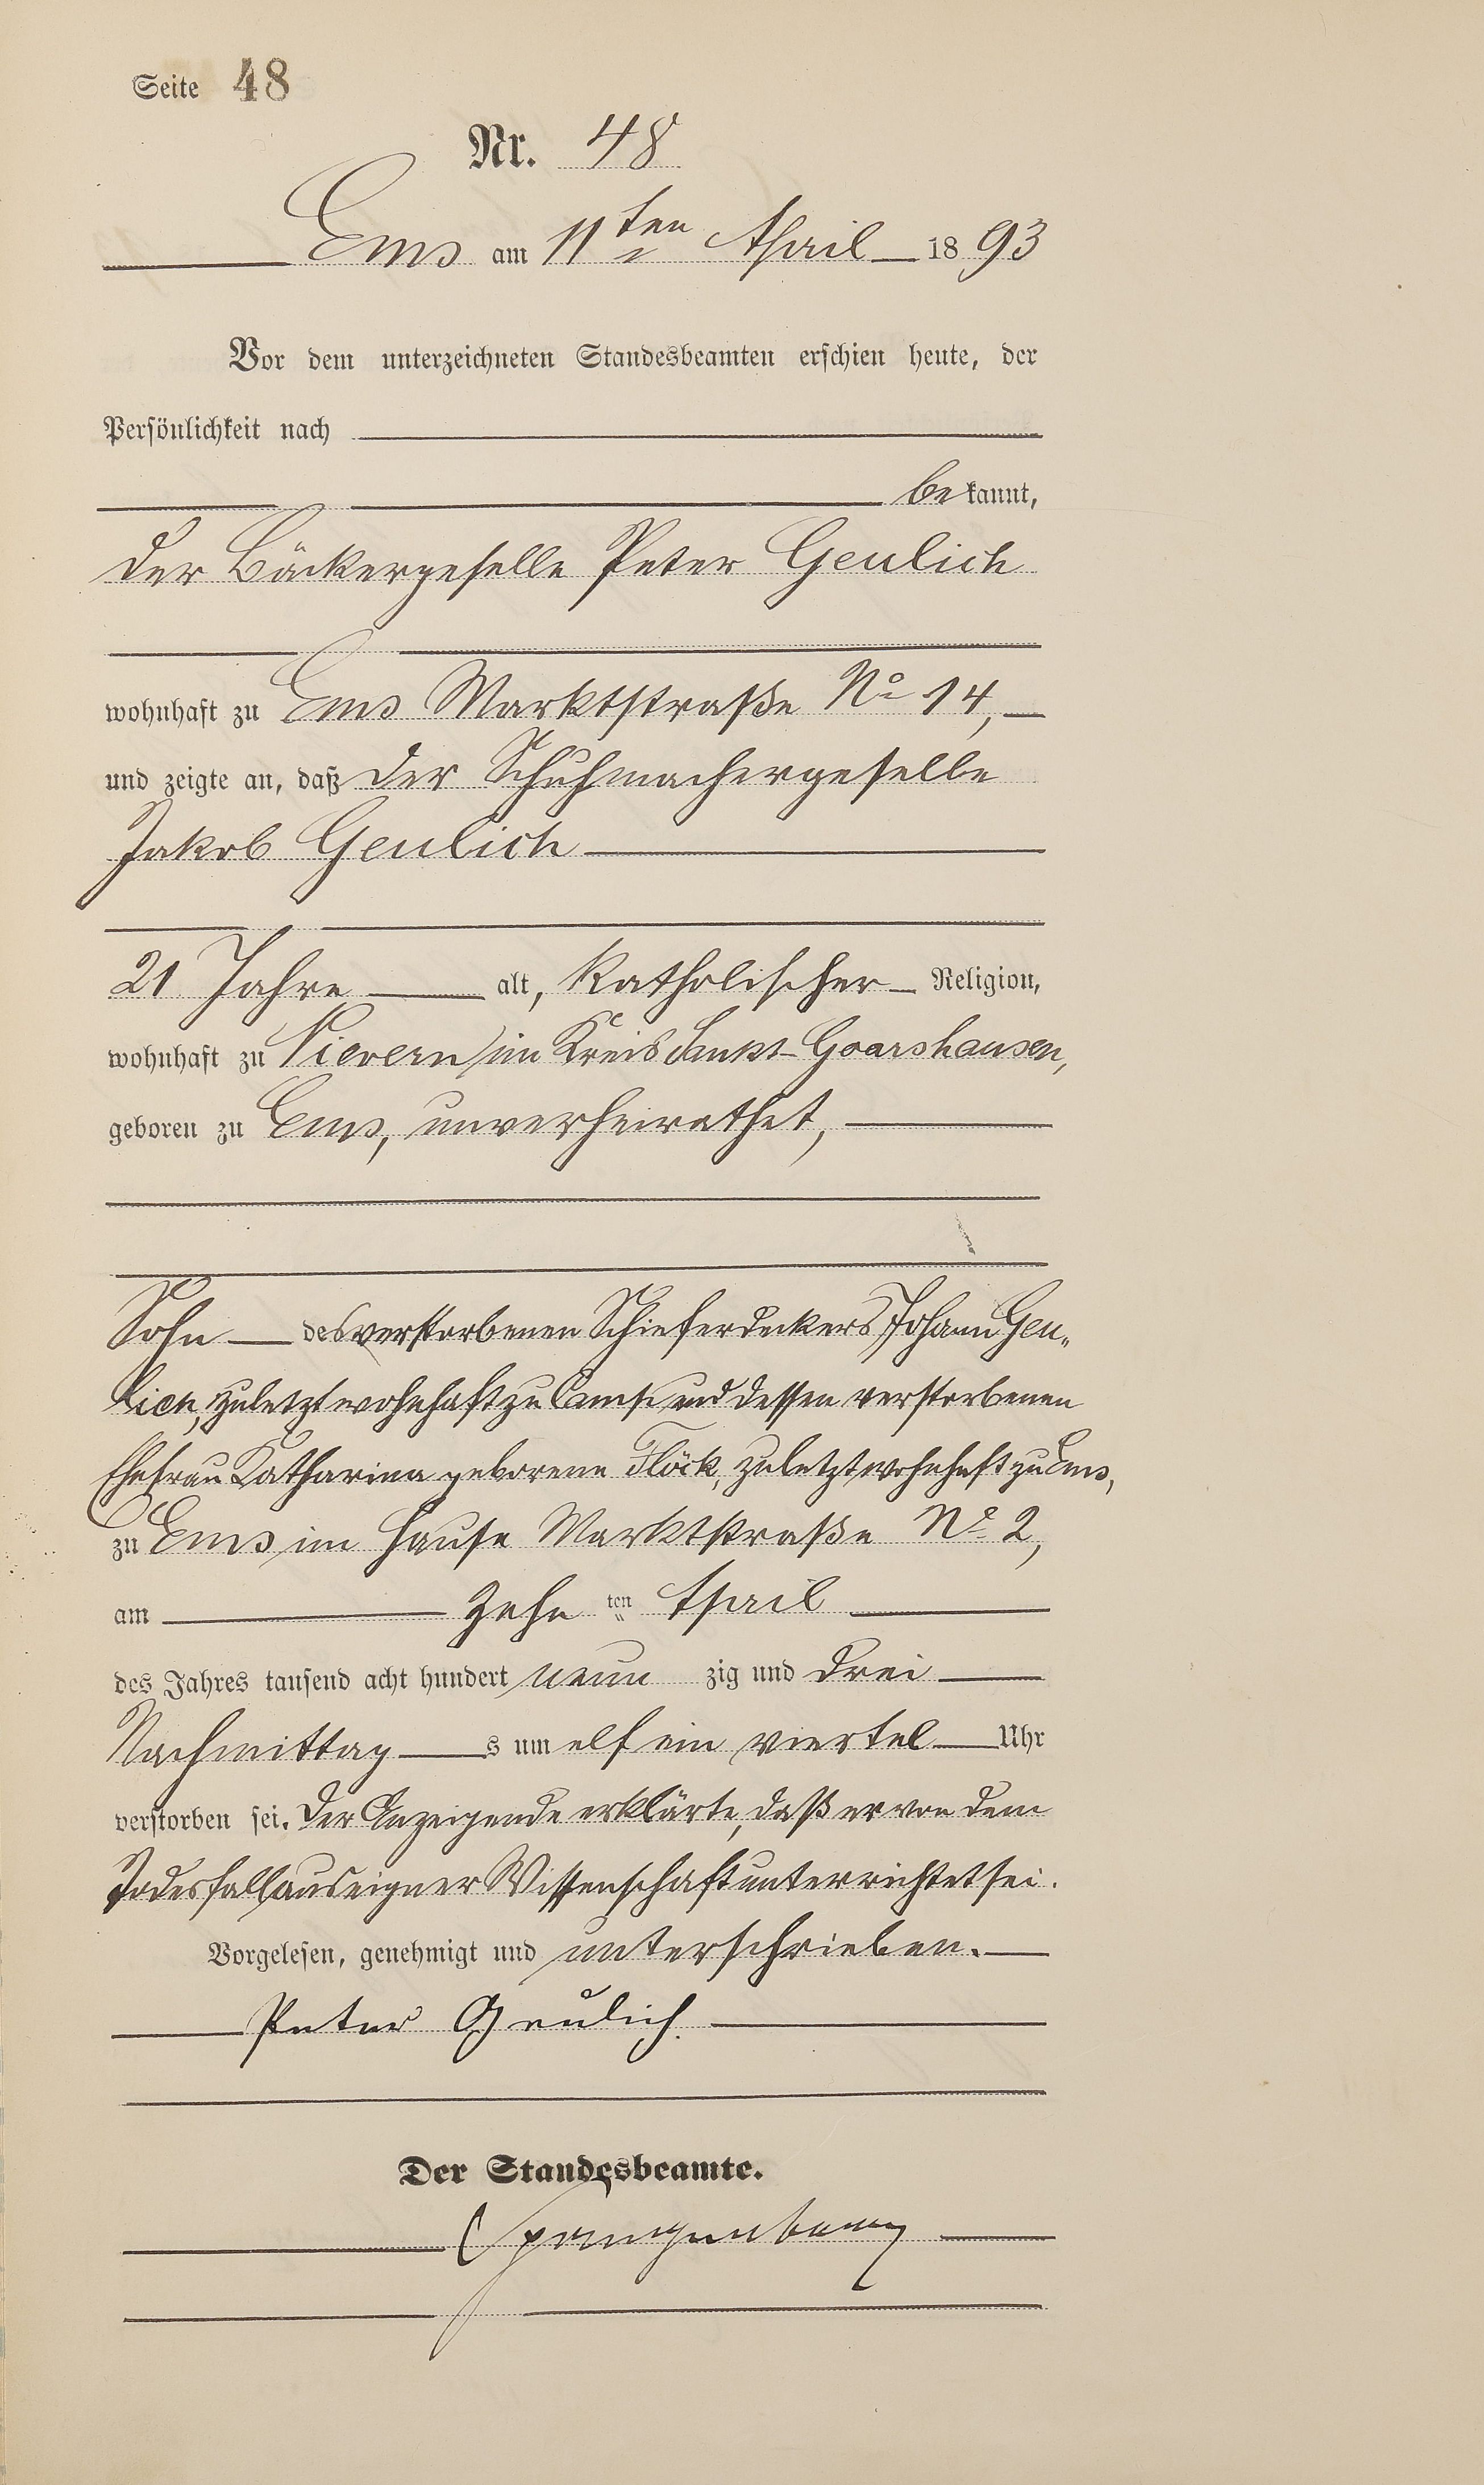 Seite 48
Nr. 48
Ems am 11ten April 1893
Vor dem unterzeichneten Standesbeamten erschien heute, der
Persönlichkeit nach
bekannt,
der Bäckergeselle Peter Geulich
wohnhaft zu Ems Marktstraße No 14,
und zeigte an, daß der Schuhmachergeselle
Jakob Geulich
21 Jahre alt, katholischer Religion,
wohnhaft zu Nievern im Kreis Sankt-Goarshausen,
geboren zu Ems, unverheirathet,
Sohn des verstorbenen Schieferdeckers Johann Geu„
lich, zuletzt wohnhaft zu Camp und dessen verstorbenen
Ehefrau Katharina geborene Flöck, zuletzt wohnhaft zu Ems,
zu Ems im Hause Marktstraße No 2,
am zehn ten April
des Jahres tausend acht hundert neun zig und drei
Nachmittag s um elf ein viertel Uhr
verstorben sei. Der Anzeigende erklärte, daß er von dem
Todesfall aus eigner Wissenschaft unterrichtet sei.
Vorgelesen, genehmigt und unterschrieben.
Peter Geulich.
Der Standesbeamte.